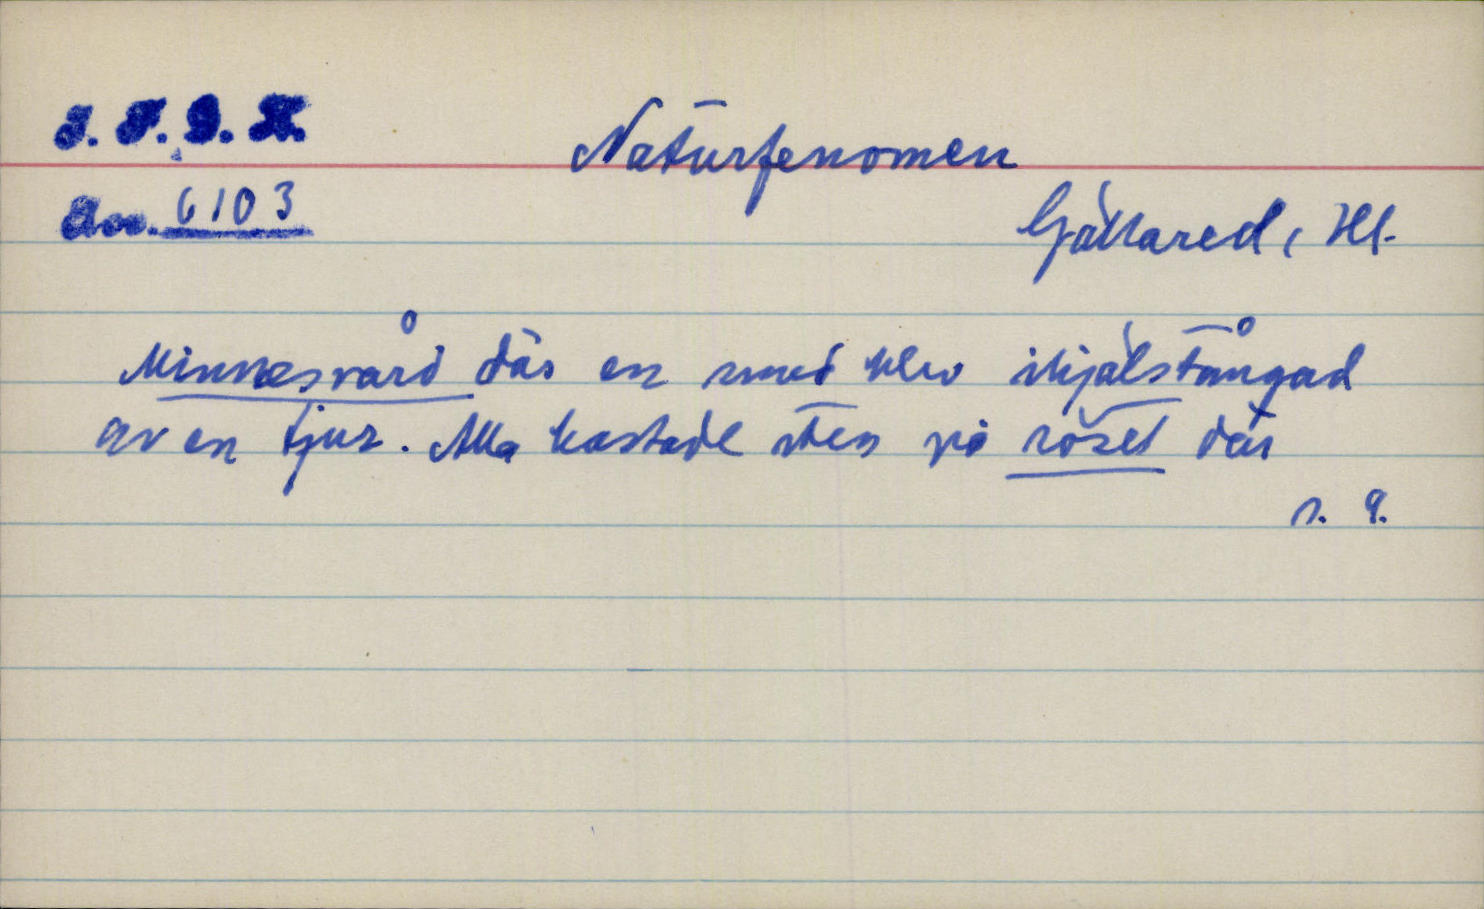 I. F. G. H.
Naturfenomen
Acc. 6103
Gällared, Hl.
Minnesvård där en smed blev ihjälstångad
av en tjur. Alla kastade sten på röset där
s. 9.